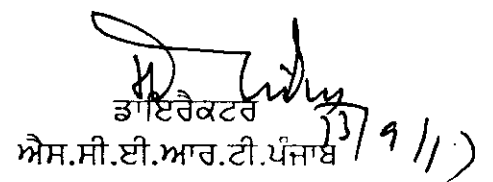 ਡਾਇਰੈਕਟਰ
ਐਸ.ਸੀ.ਈ.ਆਰ.ਟੀ.ਪੰਜਾਬ
13/9/17